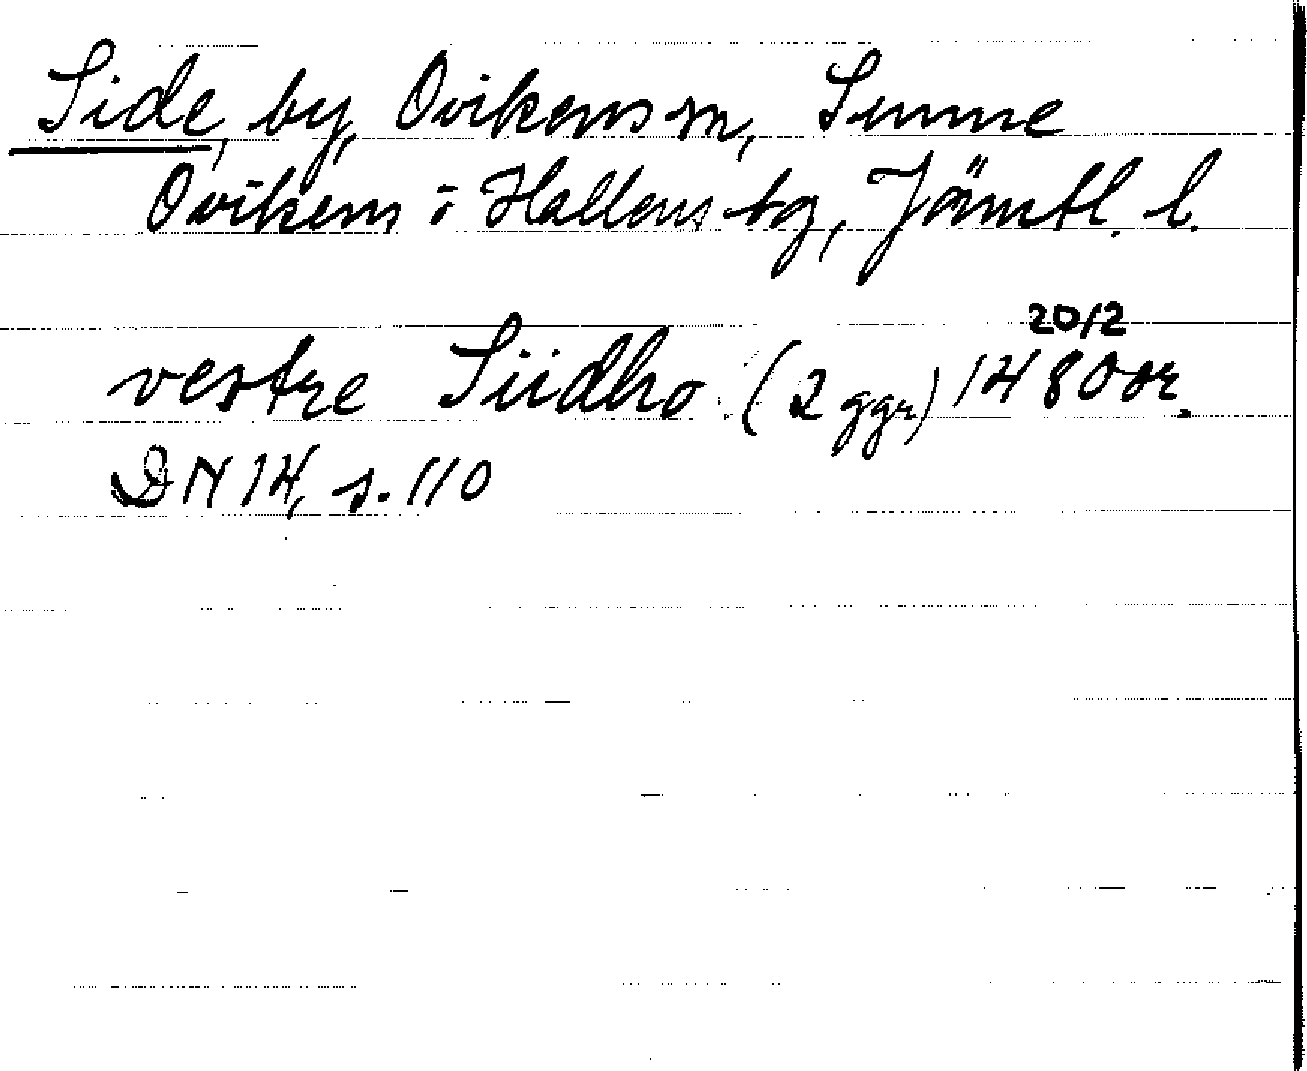 Side, by, Ovikens sn, Sunne
Ovikens o Hallens tg, Jämtl. l.
20/2
vestre Siidho (2 ggr) 1480 or.
DN 14, s. 110